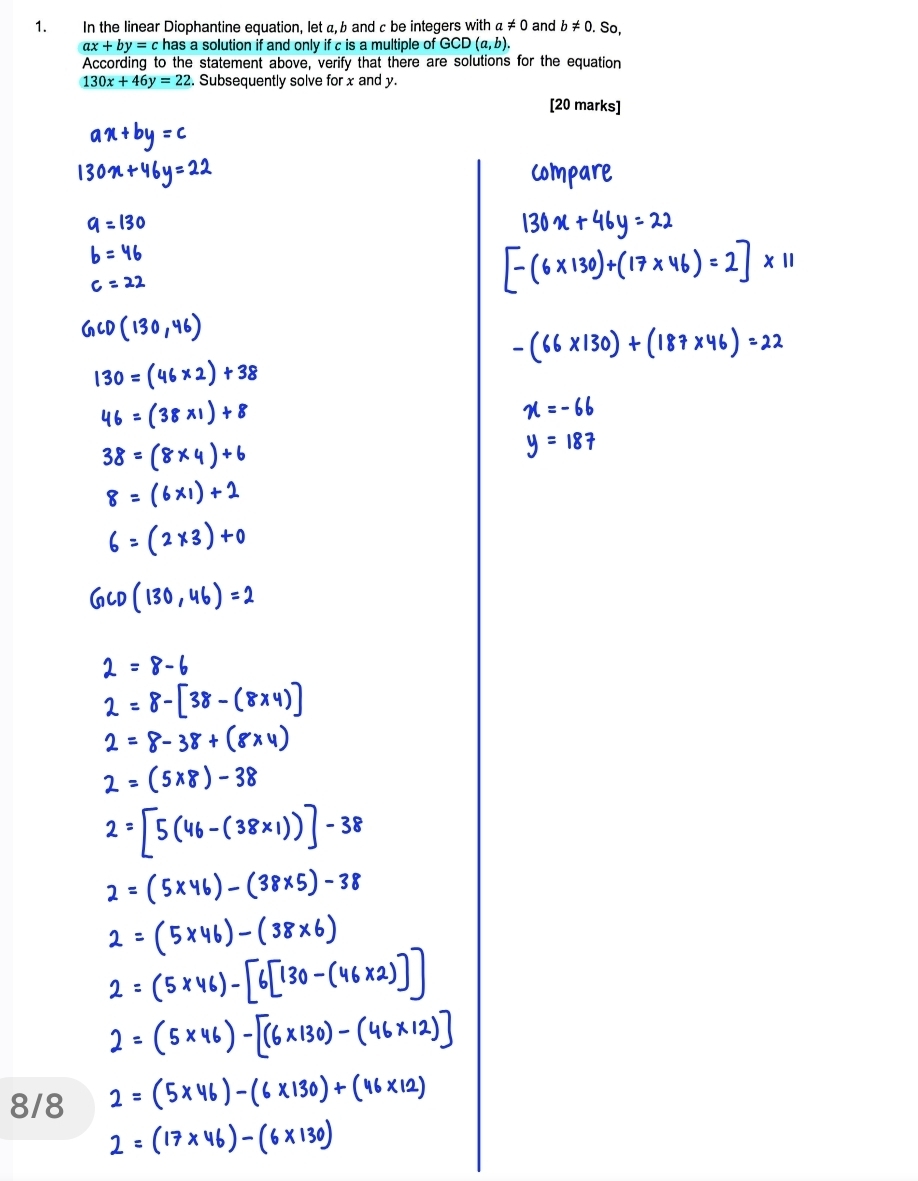 1. In the linear Diophantine equation, let a, b and c be integers with a ≠ 0 and b ≠ 0. So,
ax + by = c has a solution if and only if c is a multiple of GCD (a, b).
According to the statement above, verify that there are solutions for the equation
130x + 46y = 22. Subsequently solve for x and y.
[20 marks]
ax+by=c
130x+46y=22
a=130
b=46
c=22
GCD(130,46)
130=(46×2)+38
46=(38×1)+8
38=(8×4)+6
8=(6×1)+2
6=(2×3)+0
GCD(130,46)=2
2=8-6
2=8-[38-(8×4)]
2=8-38+(8×4)
2=(5×8)-38
2=[5(46-(38×1))]-38
2=(5×46)-(38×5)-38
2=(5×46)-(38×6)
2=(5×46)-[6[130-(46×2)]]
2=(5×46)-[(6×130)-(46×12)]
2=(5×46)-(6×130)+(46×12)
2=(17×46)-(6×130)
compare
130x+46y=22
[-(6×130)+(17×46)=2] × 11
-(66×130)+(187×46)=22
x=-66
y=187
8/8